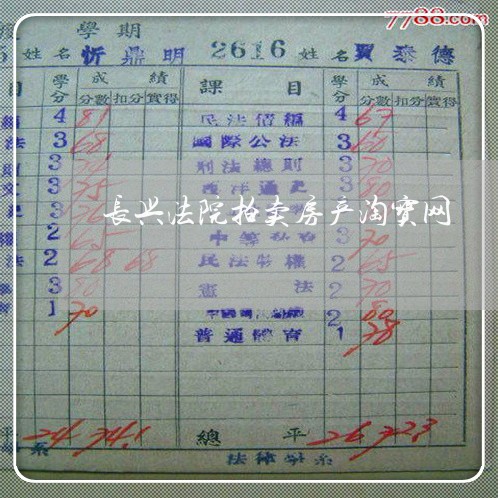 7788.com
學期
姓名 忻鼎明 2616 姓名 賈泰德
目 學分 成績 課目 學分 成績
分數 扣分 實得 分數 扣分 實得
4 81 民法債編 4 67
法 3 68 國際公法 3 60
3 刑法總則 3 70
3 75 西洋通史 3 80
長兴法院拍卖房产淘寶网
2 65 3 70
法 2 68 68 民法物權 2 65
3 80 憲法 2 70
1 70 2 80
普通體育 1 78
平 24 74.1 總平 26 72.3
系 法律學系